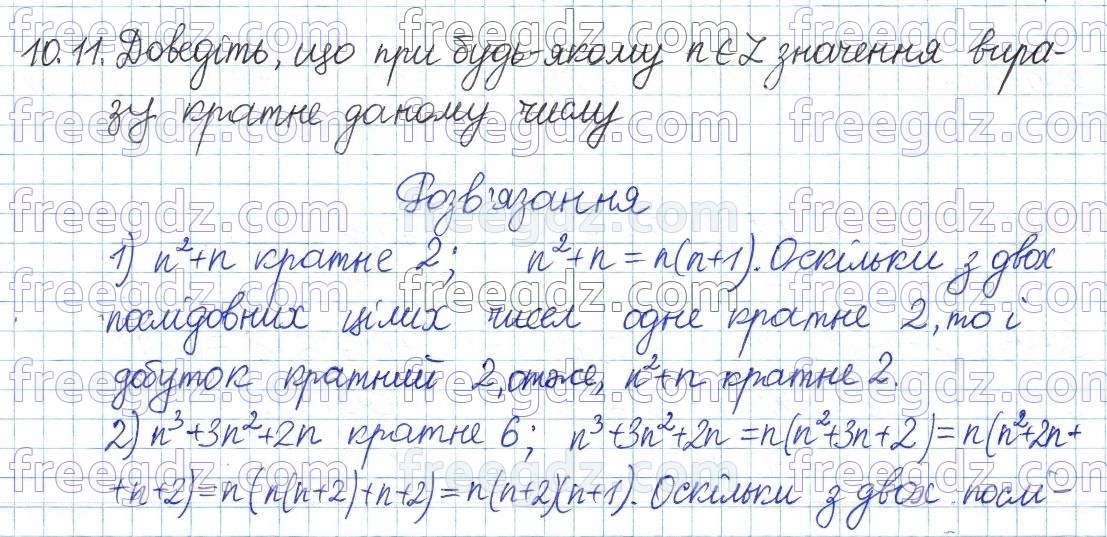 10.11. Доведіть, що при будь-якому n∈Z значення вира-
зу кратне даному числу
Розв'язання
1) n²+n кратне 2; n²+n = n(n+1). Оскільки з двох
послідовних цілих чисел одне кратне 2, то і
добуток кратний 2, отже, n²+n кратне 2.
2) n³+3n²+2n кратне 6; n³+3n²+2n = n(n²+3n+2) = n(n²+2n+
+n+2) = n(n(n+2)+n+2) = n(n+2)(n+1). Оскільки з двох послі-
freegdz.com